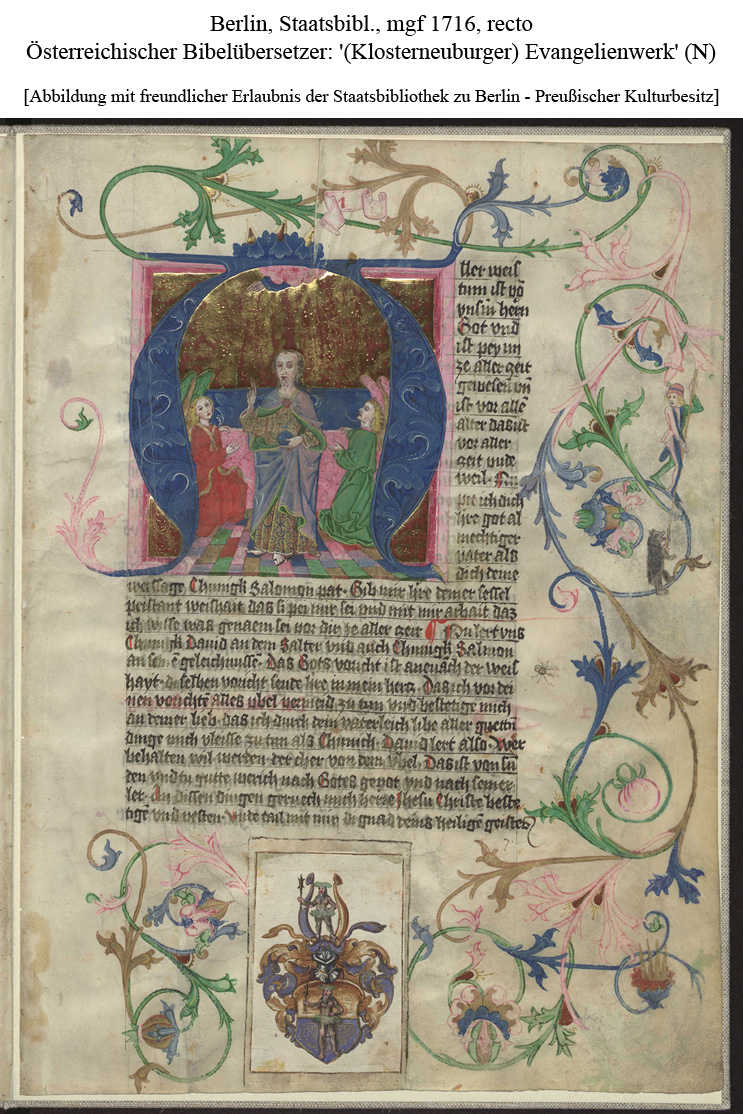 Berlin, Staatsbibl., mgf 1716, recto
Österreichischer Bibelübersetzer: '(Klosterneuburger) Evangelienwerk' (N)
[Abbildung mit freundlicher Erlaubnis der Staatsbibliothek zu Berlin - Preußischer Kulturbesitz]
ller weis
tum ist vō
vnsīm herrn
Got vnd
ist pey im
ze aller zeit
gewesen vn̄
ist vor alle
alter daʒ ist
vor aller
zeit vnde
weil
pit ich dich
h̄re got al
mechtiger
vater als
dich deine
weissage Chunigk Salomon pat Gib mir h̄re deiner sessel
peistant weishait das si pei mir sei vnd mit mir arbait daz
ich wisse was genaem sei vor dir ze aller czeit Nu lert vns
Chunigk Dauid an dem Salter vnd auch Chunigk Salmon
an sein geleichnusse Das Gots voricht ist aneuach der weis
hayt die selben voricht sende h̄re in mein hertz Das ich vor dei
nen vorichtē alles vbel vermeid zu tun vnd bestetige mich
an deiner lieb das ich durch dein vaterleich libe aller guettn̄
dinge mich vleisse zu tun als Chunich Dauid lert also Wer
behalten wil werden der cher von dem vbel Das ist von sūn
den vnd tu gutte werich nach Gotes gepot vnd nach seiner
ler An dissen dingen geruech mich herre Jhesu Christe beste
tigē vnd vesten vnde tail mit mir di gnad deins heiligē geistes